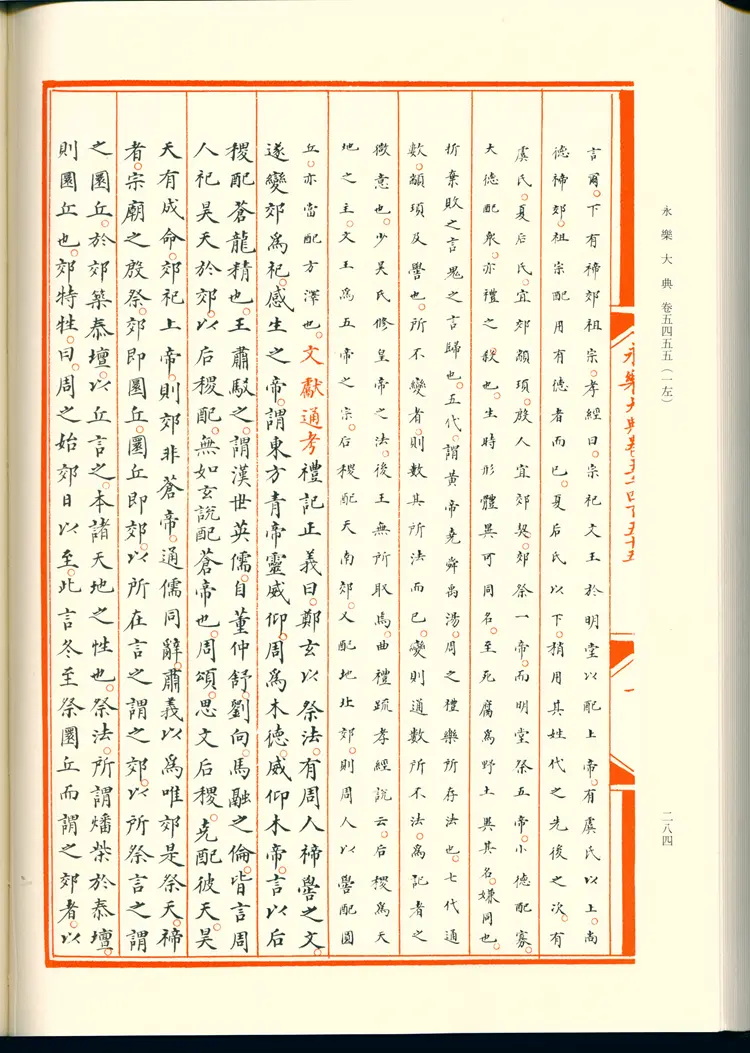 永樂大典 卷五四五五（一左）
二八四
永樂大典卷五千四百五十五
一
言爾。下有禘郊祖宗。孝經曰。宗祀文王於明堂以配上帝。有虞氏以上。尚
德禘郊。祖宗配用有德者而已。夏后氏以下。稍用其姓代之先後之次。有
虞氏。夏后氏。宜郊顓頊。殷人宜郊契。郊祭一帝。而明堂祭五帝。小德配寡。
大德配衆。亦禮之殺也。生時形體異可同名。至死腐為野土異其名。嫌同也。
折棄敗之言鬼之言歸也。五代。謂黃帝堯舜禹湯。周之禮樂所存法也。七代通
數。顓頊及嚳也。所不變者。則數其所法而已。變則通數所不法。為記者之
微意也。少昊氏修皇帝之法。後王無所取焉。曲禮疏孝經說云。后稷為天
地之主。文王為五帝之宗。后稷配天南郊。又配地北郊。則周人以嚳配圜
丘。亦當配方澤也。文獻通考禮記正義曰。鄭玄以祭法。有周人禘嚳之文。
遂變郊為祀。感生之帝。謂東方青帝靈威仰。周為木德。威仰木帝。言以后
稷配蒼龍精也。王肅駁之。謂漢世英儒。自董仲舒。劉向。馬融之倫。皆言周
人祀昊天於郊。以后稷配。無如玄說配蒼帝也。周頌。思文后稷。克配彼天。昊
天有成命。郊祀上帝。則郊非蒼帝。通儒同辭。肅義以為唯郊是祭天。禘
者。宗廟之殷祭。郊即圜丘。圜丘即郊。以所在言之謂之郊。以所祭言之謂
之圜丘。於郊築泰壇。以丘言之。本諸天地之性也。祭法。所謂燔柴於泰壇。
則圜丘也。郊特牲。曰。周之始郊日以至。此言冬至祭圜丘而謂之郊者。以